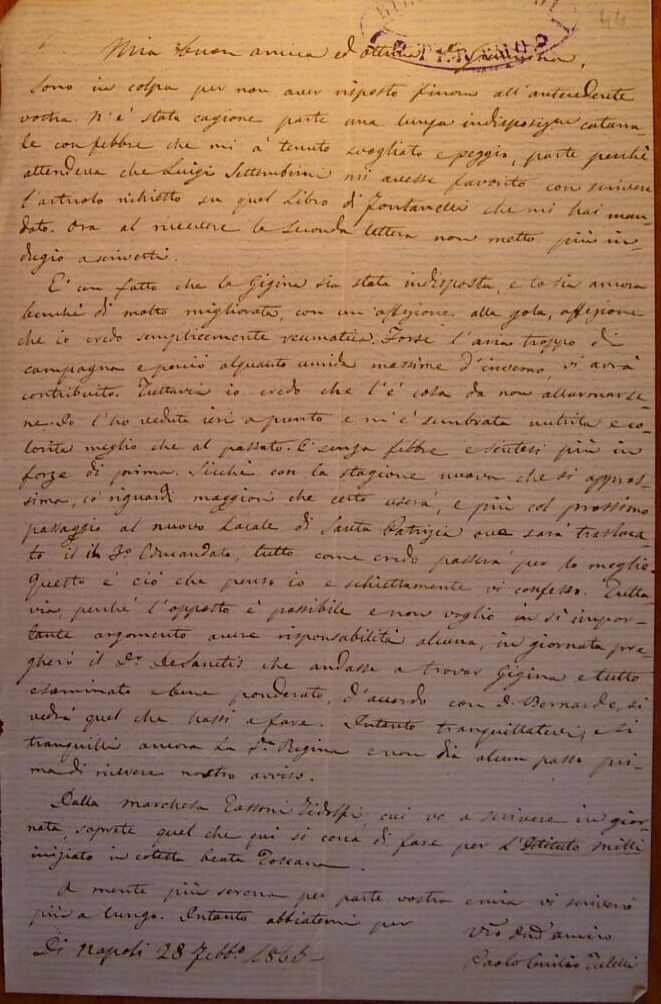 Mia buona amica ed ottima
Sono in colpa per non aver risposto finora all'antecedente
vostra. N'è stata cagione parte una lunga indisposizne catarra-
le con febbre che mi à tenuto svogliato e peggio, parte perchè
attendeva che Luigi Settembrini mi avesse favorito con scrivere
l'articolo richiesto su quel Libro di Fontanelli che mi hai man-
dato. Ora al ricevere la seconda lettera non metto più in-
dugio a scriverti.
È un fatto che la Gigina sia stata indisposta, e lo sia ancora
benchè di molto migliorata, con un'affezione alla gola, affezione
che io credo semplicemente reumatica. Forse l'aria troppo di
campagna e perciò alquanto umida massime d'inverno, vi avrà
contribuito. Tuttavia io credo che l'è cosa da non allarmarse-
ne. Io l'ho veduta ieri appunto e m'è sembrata nutrita e co-
lorita meglio che al passato. È senza febbre e sentesi più in
forze di prima. Sicchè con la stagione nuova che si appros-
sima, co' riguardi maggiori che certo userà, e più col prossimo
passaggio al nuovo Locale di Santa Patrizia ove sarà trasloca-
to il 3o. Educandato, tutto come credo passerà per lo meglio.
Questo è ciò che penso io e schiettamente vi confesso. Tutta-
via, perchè l'opposto è possibile e non voglio in sì impor-
tante argomento avere risponsabilità alcuna, in giornata pre-
gherò il Dr. De Sanctis che andasse a trovar Gigina, e tutto
esaminato e bene ponderato, d'accordo con D. Bernardo, si
vedrà quel che hassi a fare. Intanto tranquillatevi, e si
tranquilli ancora la Sra Regina e non dia alcun passo pri-
ma di ricevere nostro avviso.
Dalla marchesa Tassoni Ridolfi, cui vo a scrivere in gior-
nata, saprete quel che qui si cerca di fare per l'Istituto Milli
iniziato in cotesta beata Toscana.
A mente più serena per parte vostra e mia vi scriverò
più a lungo. Intanto abbiatemi per
Vro amico
Di Napoli 28 Febbo. 186
Paolo Emilio